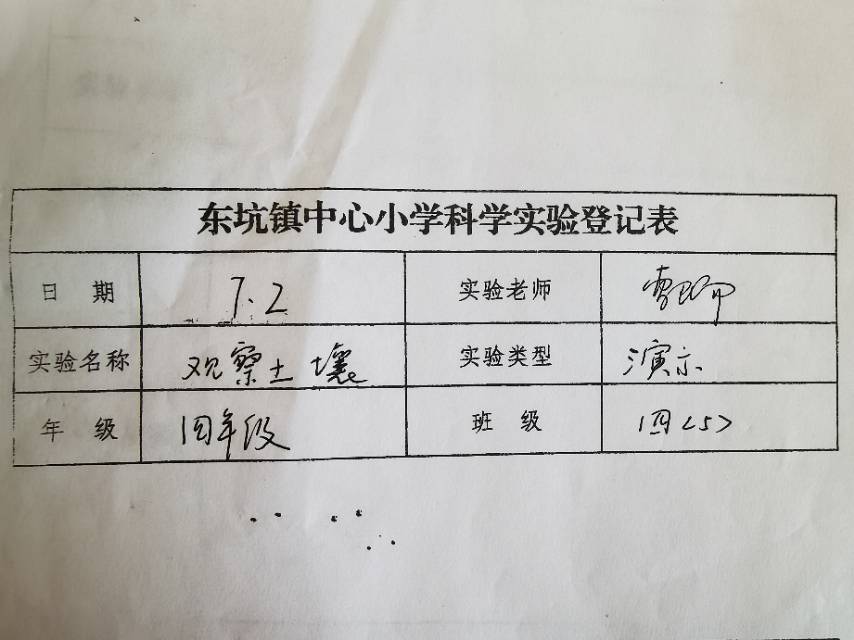 东坑镇中心小学科学实验登记表
日期 7.2 实验老师
实验名称 观察土壤 实验类型 演示
年级 四年级 班级 四<5>